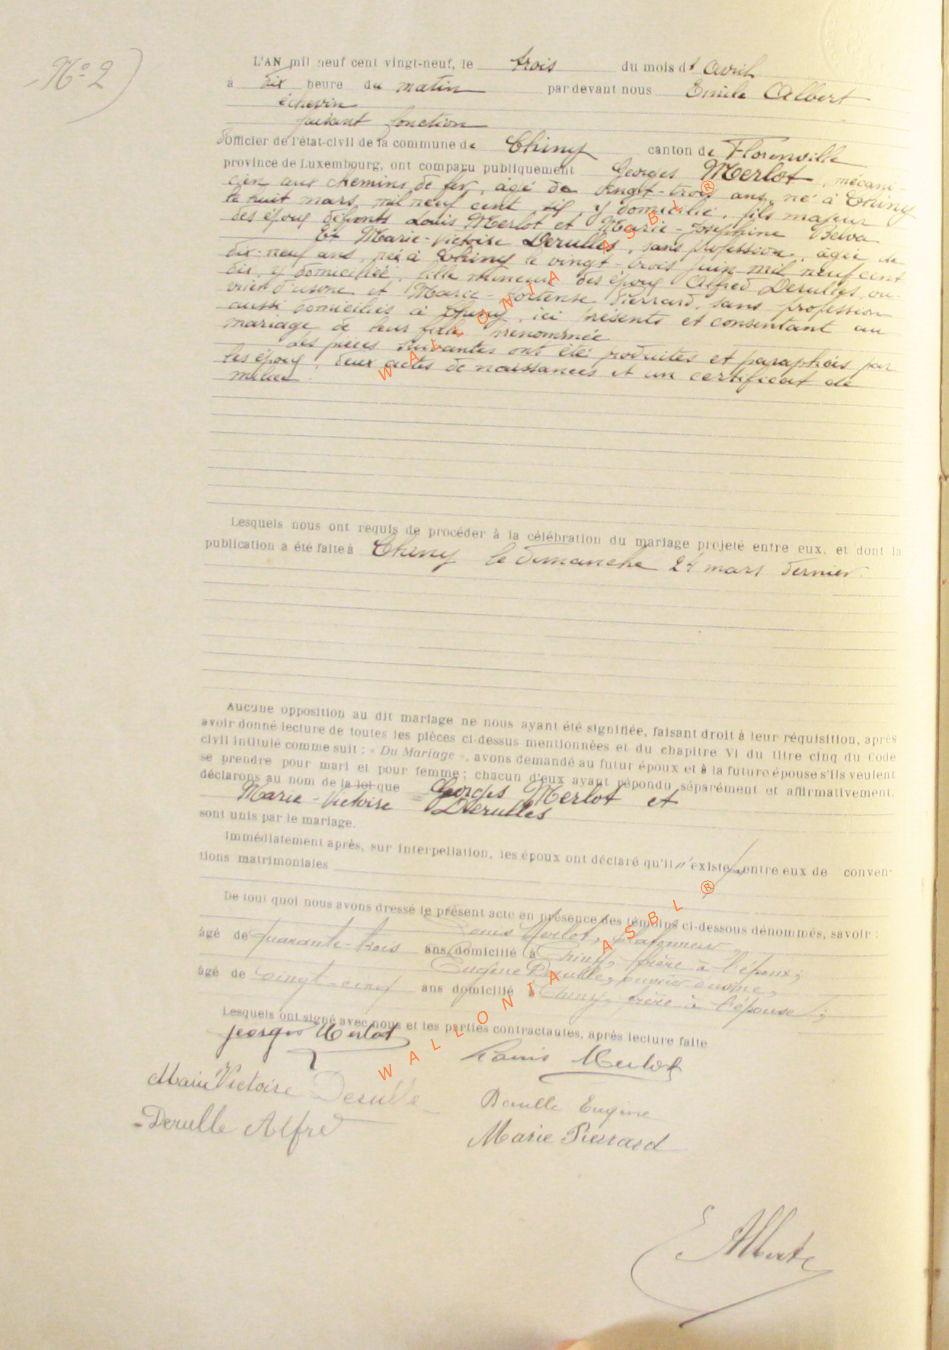 N° 2
L'AN mil neuf cent vingt-neuf, le trois du mois d' Avril
à dix heure du matin par devant nous Emile Albert
échevin
faisant fonction
d'Officier de l'état-civil de la commune de Chiny canton de Florenville
province de Luxembourg, ont comparu publiquement Georges Merlot, mécani
cien aux chemins de fer, âgé de vingt-trois ans, né à Chiny
le huit mars mil neuf cent six, y domicilié, fils majeur
des époux défunts Louis Merlot et Marie-Josephine Belva
Et Marie-Victoire Derulles, sans profession, âgée de
dix-neuf ans, née à Chiny le vingt-trois juin mil neuf cent
dix, y domiciliée, fille mineure des époux Alfred Derulles, ou
vrier d'usine et Marie-Hortense Pierrard, sans profession
aussi domiciliés à Chiny, ici présents et consentant au
mariage de leur fille prénommée
Les pièces suivantes ont été produites et paraphées par
les époux, deux actes de naissances et un certificat de
milice.
Lesquels nous ont requis de procéder à la célébration du mariage projeté entre eux, et dont la
publication a été faite à Chiny le dimanche 24 mars dernier.
Aucune opposition au dit mariage ne nous ayant été signifiée, faisant droit à leur réquisition, après
avoir donné lecture de toutes les pièces ci-dessus mentionnées et du chapitre VI du titre cinq du Code
civil intitulé comme suit : « Du Mariage », avons demandé au futur époux et à la future épouse s'ils veulent
se prendre pour mari et pour femme ; chacun d'eux ayant répondu séparément et affirmativement,
déclarons au nom de la loi que Georges Merlot et
Marie-Victoire Derulles
sont unis par le mariage.
Immédiatement après, sur interpellation, les époux ont déclaré qu'il n'existe entre eux de conven-
tions matrimoniales
De tout quoi nous avons dressé le présent acte en présence des témoins ci-dessous dénommés, savoir :
Louis Merlot, plafonneur
âgé de quarante-trois ans domicilié à Chiny, frère à l'époux ;
Eugène Derulle, ouvrier d'usine,
âgé de vingt-cinq ans domicilié à Chiny, frère à l'épouse ;
Lesquels ont signé avec nous et les parties contractantes, après lecture faite
Georges Merlot
Louis Merlot
Marie Victoire Derulle
Derulle Eugène
Derulle Alfred
Marie Pierrard
E Albert
WALLONIA ASBL ®
WALLONIA ASBL ®